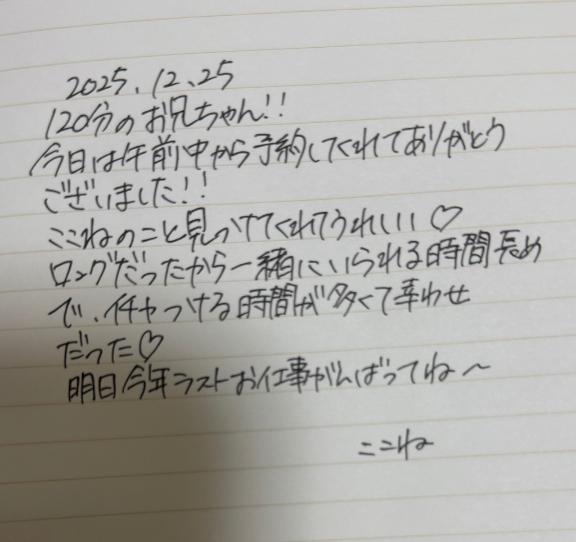 2025.12.25
120分のお兄ちゃん!!
今日は午前中から予約してくれてありがとう
ございました!!
ここねのこと見つけてくれてうれしい♡
ロングだったから一緒にいられる時間長め
で、イチャつける時間が多くて幸わせ
だった♡
明日今年ラストお仕事がんばってね〜
ここね